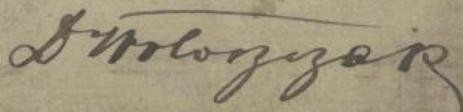 Dr Wołoszczak